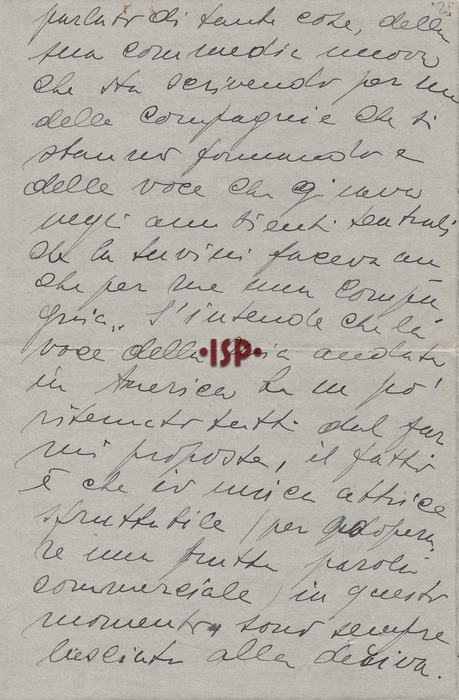 parlato di tante cose, della
sua commedia nuova
che sta scrivendo per una
delle compagnie che si
stanno formando e
delle voce che girava
negli ambienti teatrali,
che la Suvini faceva an
che per me una compa
gnia. S'intende che la
voce della mia andata
•ISP•
in America ha un po'
ritenuto tutti dal far
mi proposte, il fatto
è che io unica attrice
sfruttabile (per adopera
re una brutta parola
commerciale) in questo
momento, sono sempre
lasciata alla deriva.